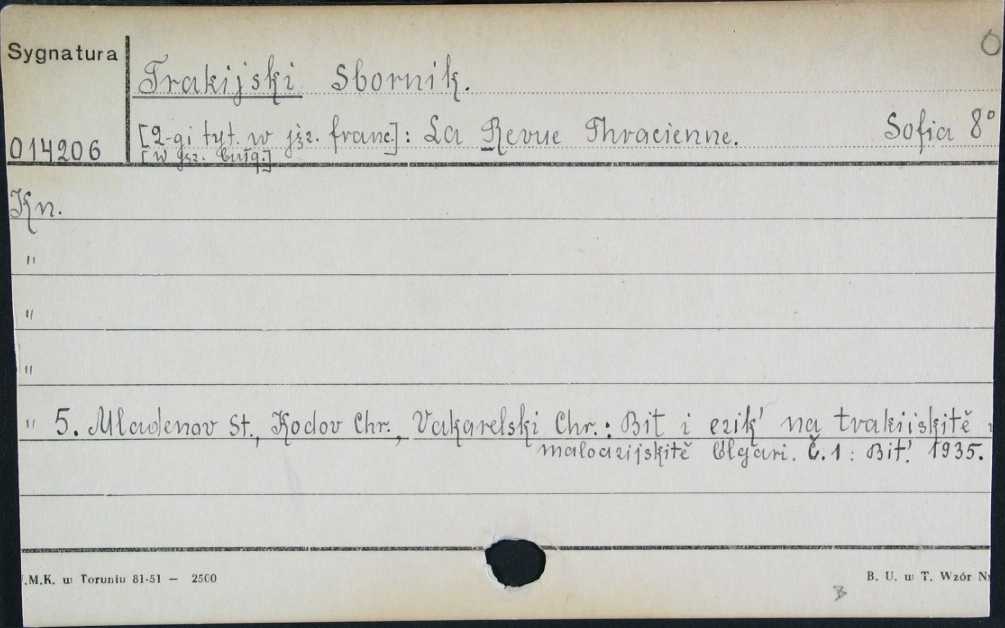 O
Sygnatura
Trakijski Sbornik.
[2-gi tyt. w jęz. franc]: La Revue Thracienne. Sofia 8°
014206 [w jęz. bułg.]
Kn.
"
"
"
" 5. Mladenov St., Kodov Chr., Vakarelski Chr.: Bit i ezik' na trakijskitě
maloazijskitě blgari. Č.1: Bit'. 1935.
.M.K. w Toruniu 81-51 — 2500
B. U. w T. Wzór N
B